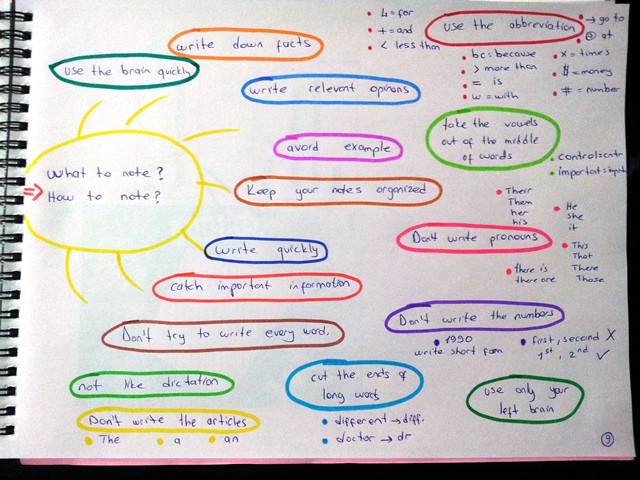 write down facts
use the brain quickly
4 = for
+ = and
< less than
use the abbreviation
→ go to
@ at
bc = because
> more than
= is
w = with
x = times
$ = money
# = number
write relevant opinions
take the vowels
out of the middle
of words
control = cntr
important =
avoid example
What to note?
How to note?
Keep your notes organized
Their
Them
her
his
He
she
it
Don't write pronouns
This
That
There
Those
there is
there are
write quickly
catch important information
Don't write the numbers
1990
write short form
first, second X
1st, 2nd ✓
Don't try to write every word.
not like dictation
cut the ends of
long words
different → diff.
doctor → dr
use only your
left brain
Don't write the articles
The
a
an
9